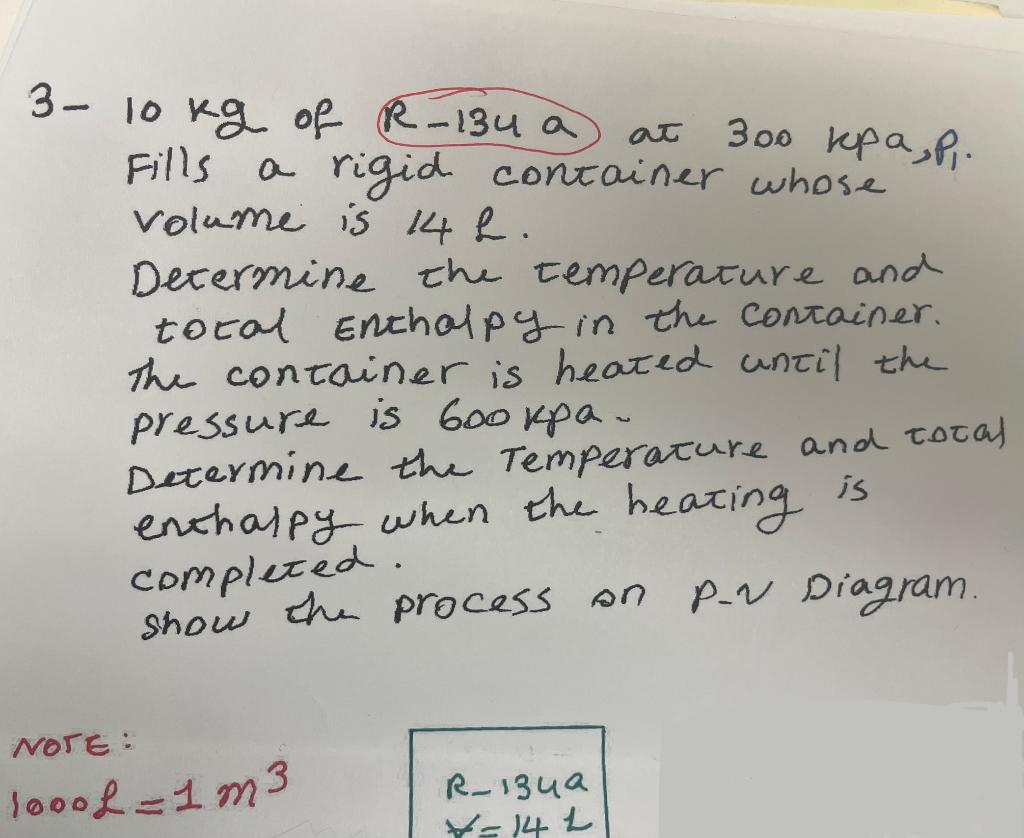 3- 10 kg of R-134a at 300 kpa, P1.
Fills a rigid container whose
volume is 14 L.
Determine the temperature and
total Enthalpy in the container.
The container is heated until the
pressure is 600 kpa.
Determine the Temperature and total
enthalpy when the heating is
completed.
show the process on P-v Diagram.
NOTE:
1000L = 1 m³
R-134a
V = 14 L